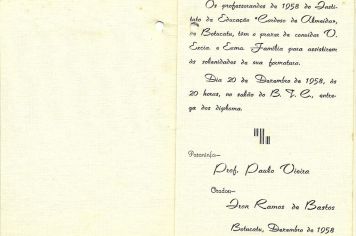 Os professorandos de 1958 do Insti-
tuto de Educação "Cardoso de Almeida",
de Botucatu, têm o prazer de convidar V.
Excia. e Exma. Família para assistirem
às solenidades de sua formatura.
Dia 20 de Dezembro de 1958, às
20 horas, no salão do B. T. C., entre-
ga dos diploma.
Paraninfo—
Prof. Paulo Vieira
Orador—
Iron Ramos de Bastos
Botucatu, Dezembro de 1958